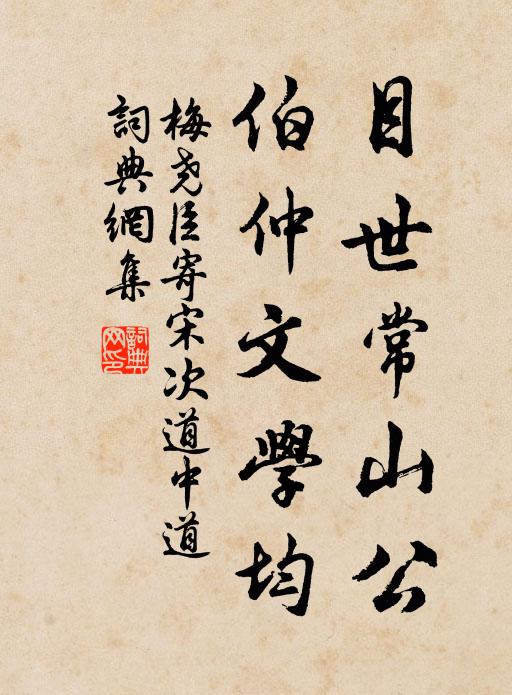 目世常山公
伯仲文學均
梅尧臣寄宋次道中道
詞典網集
詞典网印